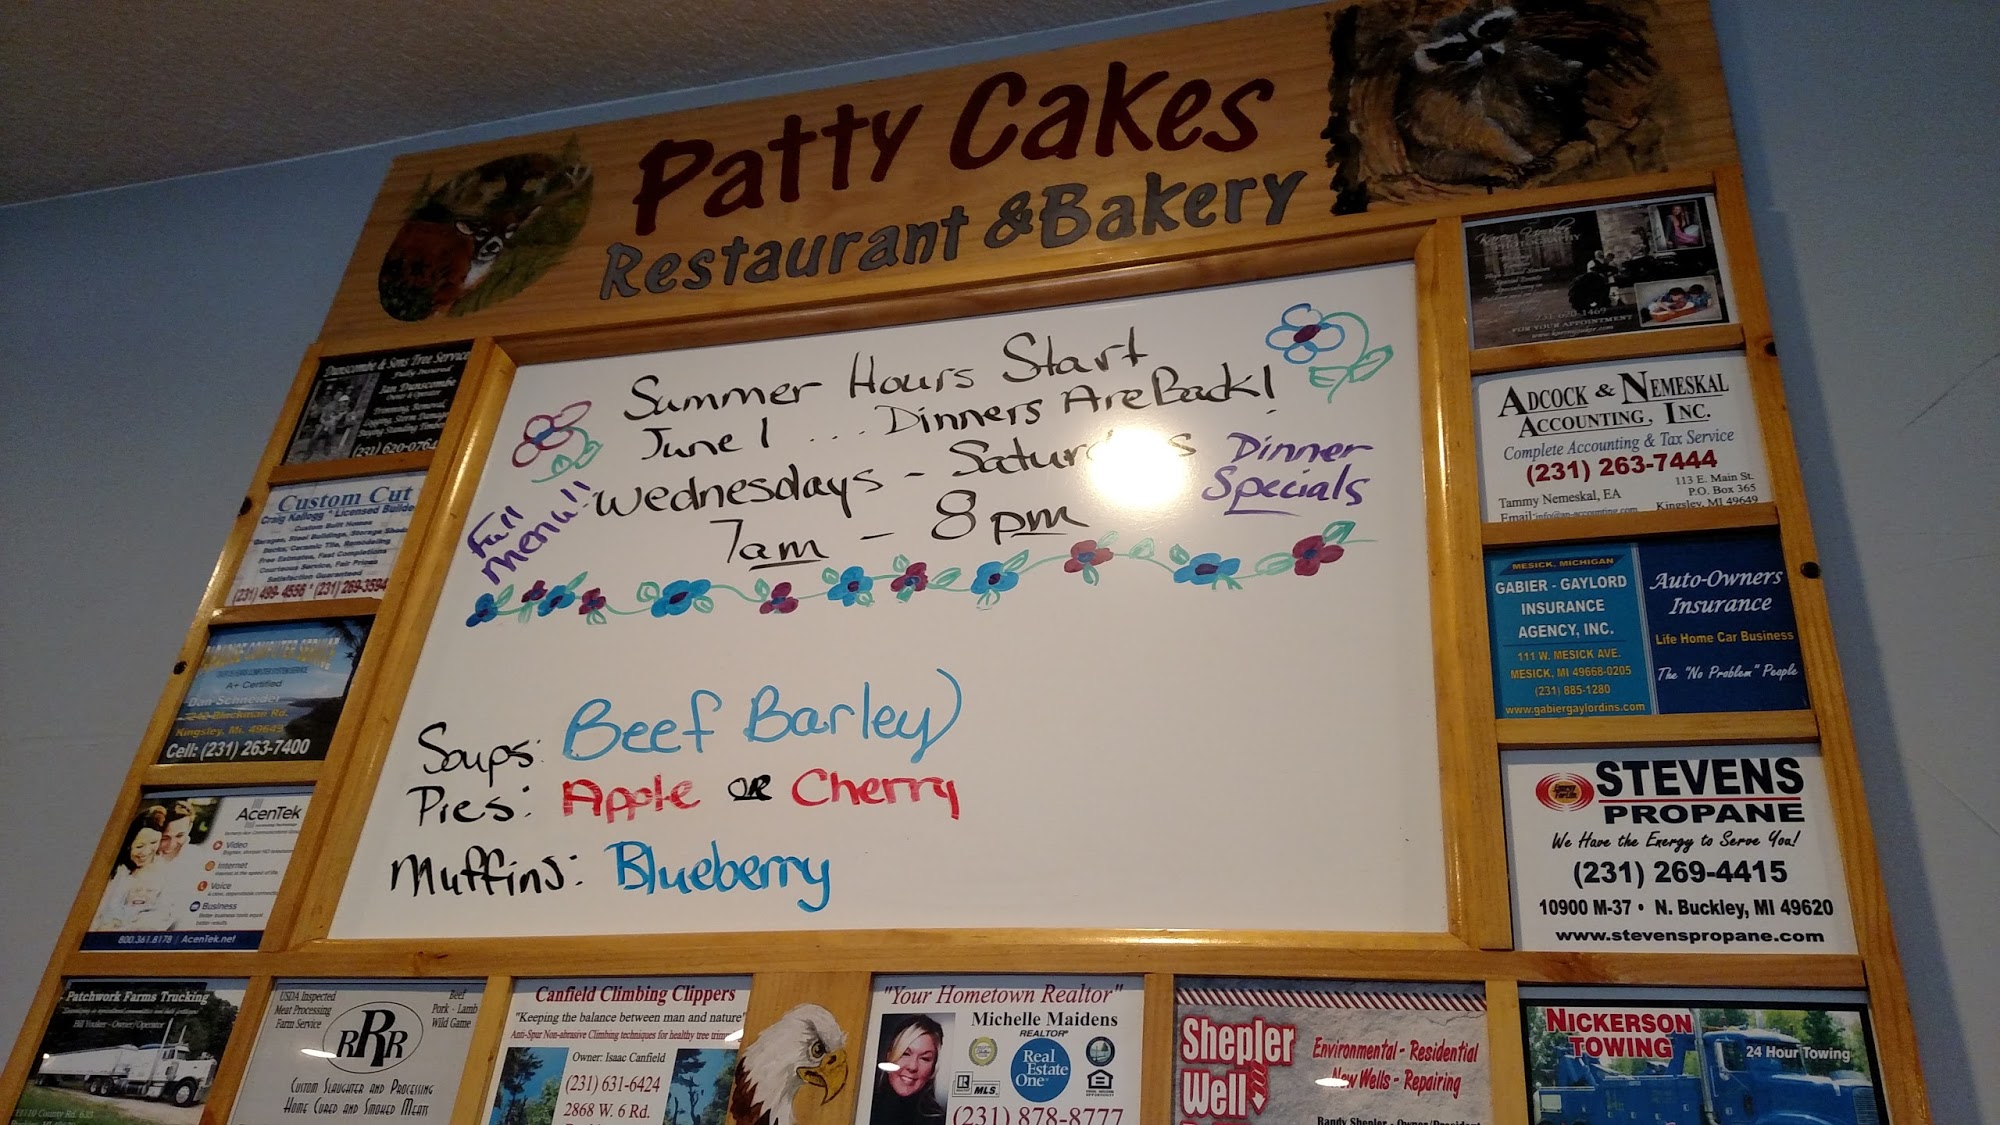 Patty Cakes
Restaurant & Bakery
Summer Hours Start
June 1 ... Dinners Are Back!
Wednesdays - Saturdays
7am - 8pm
Full
menu!!
Dinner
Specials
Soups: Beef Barley
Pies: Apple or Cherry
Muffins: Blueberry
Dunscombe & Sons Tree Service
Fully Insured
Ian Dunscombe
Owner & Operator
Trimming, Removal,
Logging, Storm Damage
Buying Standing Timber
(231) 620-0764
Custom Cut
Craig Kellogg * Licensed Builde
Custom Built Homes
Garages, Steel Buildings, Storage Sheds
Decks, Ceramic Tile, Remodeling
Free Estimates, Fast Completions
Courteous Service, Fair Prices
Satisfaction Guaranteed
(231) 499-4556 * (231) 269-3594
COMPUTER SERVICE
A+ Certified
Dan Schneider
Blackman Rd.
Kingsley, Mi. 49649
Cell: (231) 263-7400
AcenTek
Video
Internet
Voice
Business
800.361.8178 | AcenTek.net
Patchwork Farms Trucking
Bill Yonker - Owner/Operator
USDA Inspected
Meat Processing
Farm Service
Beef
Pork - Lamb
Wild Game
RRR
Custom Slaughter and Processing
Home Cured and Smoked Meats
Canfield Climbing Clippers
"Keeping the balance between man and nature"
Anti-Spur Non-abrasive Climbing techniques for healthy tree trim
Owner: Isaac Canfield
(231) 631-6424
2868 W. 6 Rd.
"Your Hometown Realtor"
Michelle Maidens
REALTOR®
Real
Estate
One
MLS
(231) 878-8777
Shepler
Well
Environmental - Residential
New Wells - Repairing
Randy Shepler - Owner/President
NICKERSON
TOWING
24 Hour Towing
PHOTOGRAPHY
231-620-1469
FOR YOUR APPOINTMENT
ADCOCK & NEMESKAL
ACCOUNTING, INC.
Complete Accounting & Tax Service
(231) 263-7444
Tammy Nemeskal, EA
Email: info@an-accounting.com
113 E. Main St.
P.O. Box 365
Kingsley, MI 49649
MESICK, MICHIGAN
GABIER - GAYLORD
INSURANCE
AGENCY, INC.
111 W. MESICK AVE.
MESICK, MI 49668-0205
(231) 885-1280
www.gabiergaylordins.com
Auto-Owners
Insurance
Life Home Car Business
The "No Problem" People
STEVENS
PROPANE
We Have the Energy to Serve You!
(231) 269-4415
10900 M-37 • N. Buckley, MI 49620
www.stevenspropane.com